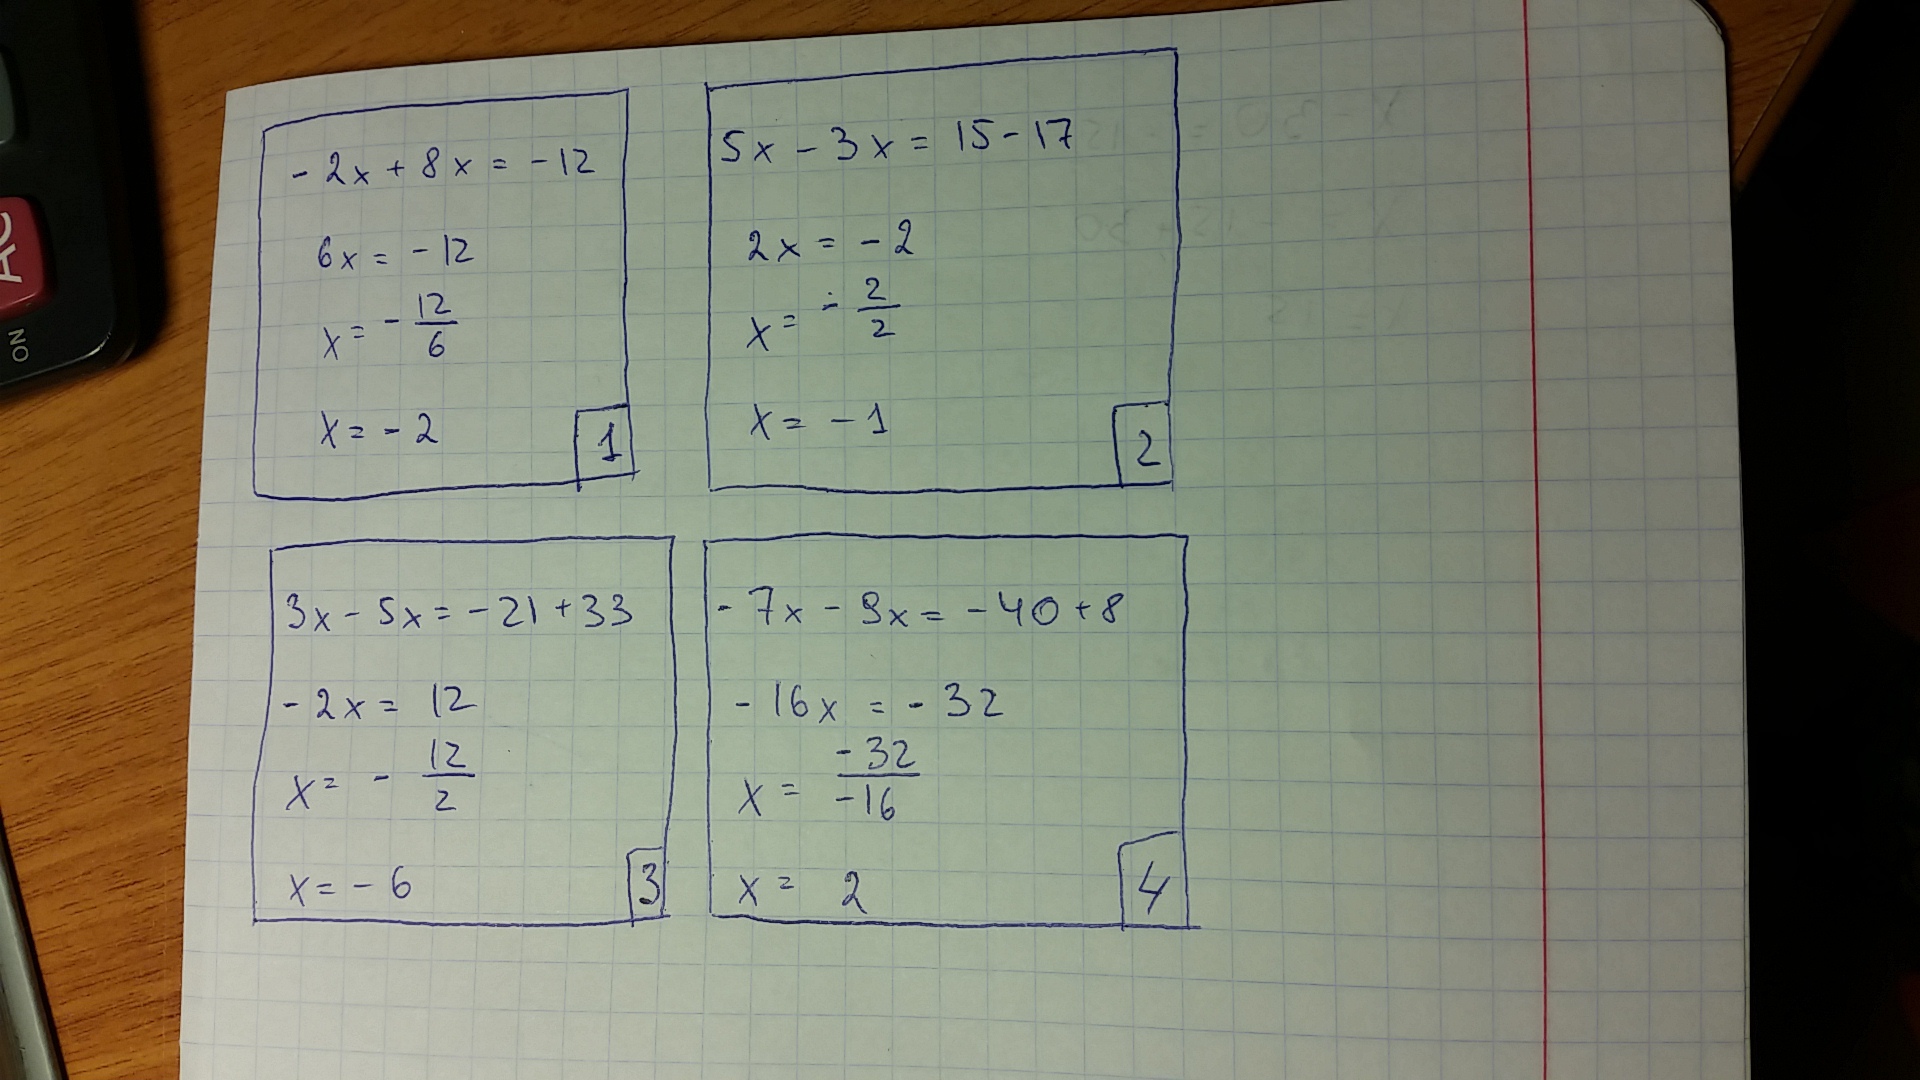 -2x+8x=-12
6x=-12
x=-12/6
x=-2
1
5x-3x=15-17
2x=-2
x=-2/2
x=-1
2
3x-5x=-21+33
-2x=12
x=-12/2
x=-6
3
-7x-9x=-40+8
-16x=-32
x=-32/-16
x=2
4
AC
ON